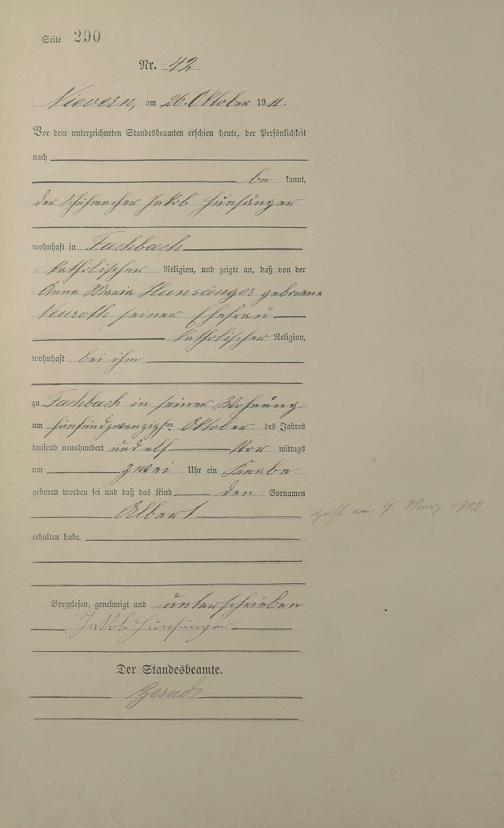 Seite 290
Nr. 42
Nievern, am 26. Oktober 1911.
Vor dem unterzeichneten Standesbeamten erschien heute, der Persönlichkeit
nach
be kannt,
der Schuhmacher Jakob Hunsänger
wohnhaft in Fachbach
katholischer Religion, und zeigte an, daß von der
Anna Maria Hunsänger geborene
Neuroth seiner Ehefrau
katholischer Religion,
wohnhaft bei ihm
zu Fachbach in seiner Wohnung
am fünfundzwanzigsten Oktober des Jahres
tausend neunhundert und elf Vor mittags
um zwei Uhr ein Knabe
geboren worden sei und daß das Kind den Vornamen
Albert
gest. am 7. März 1912
erhalten habe.
Vorgelesen, genehmigt und unterschrieben
Jakob Hunsänger
Der Standesbeamte.